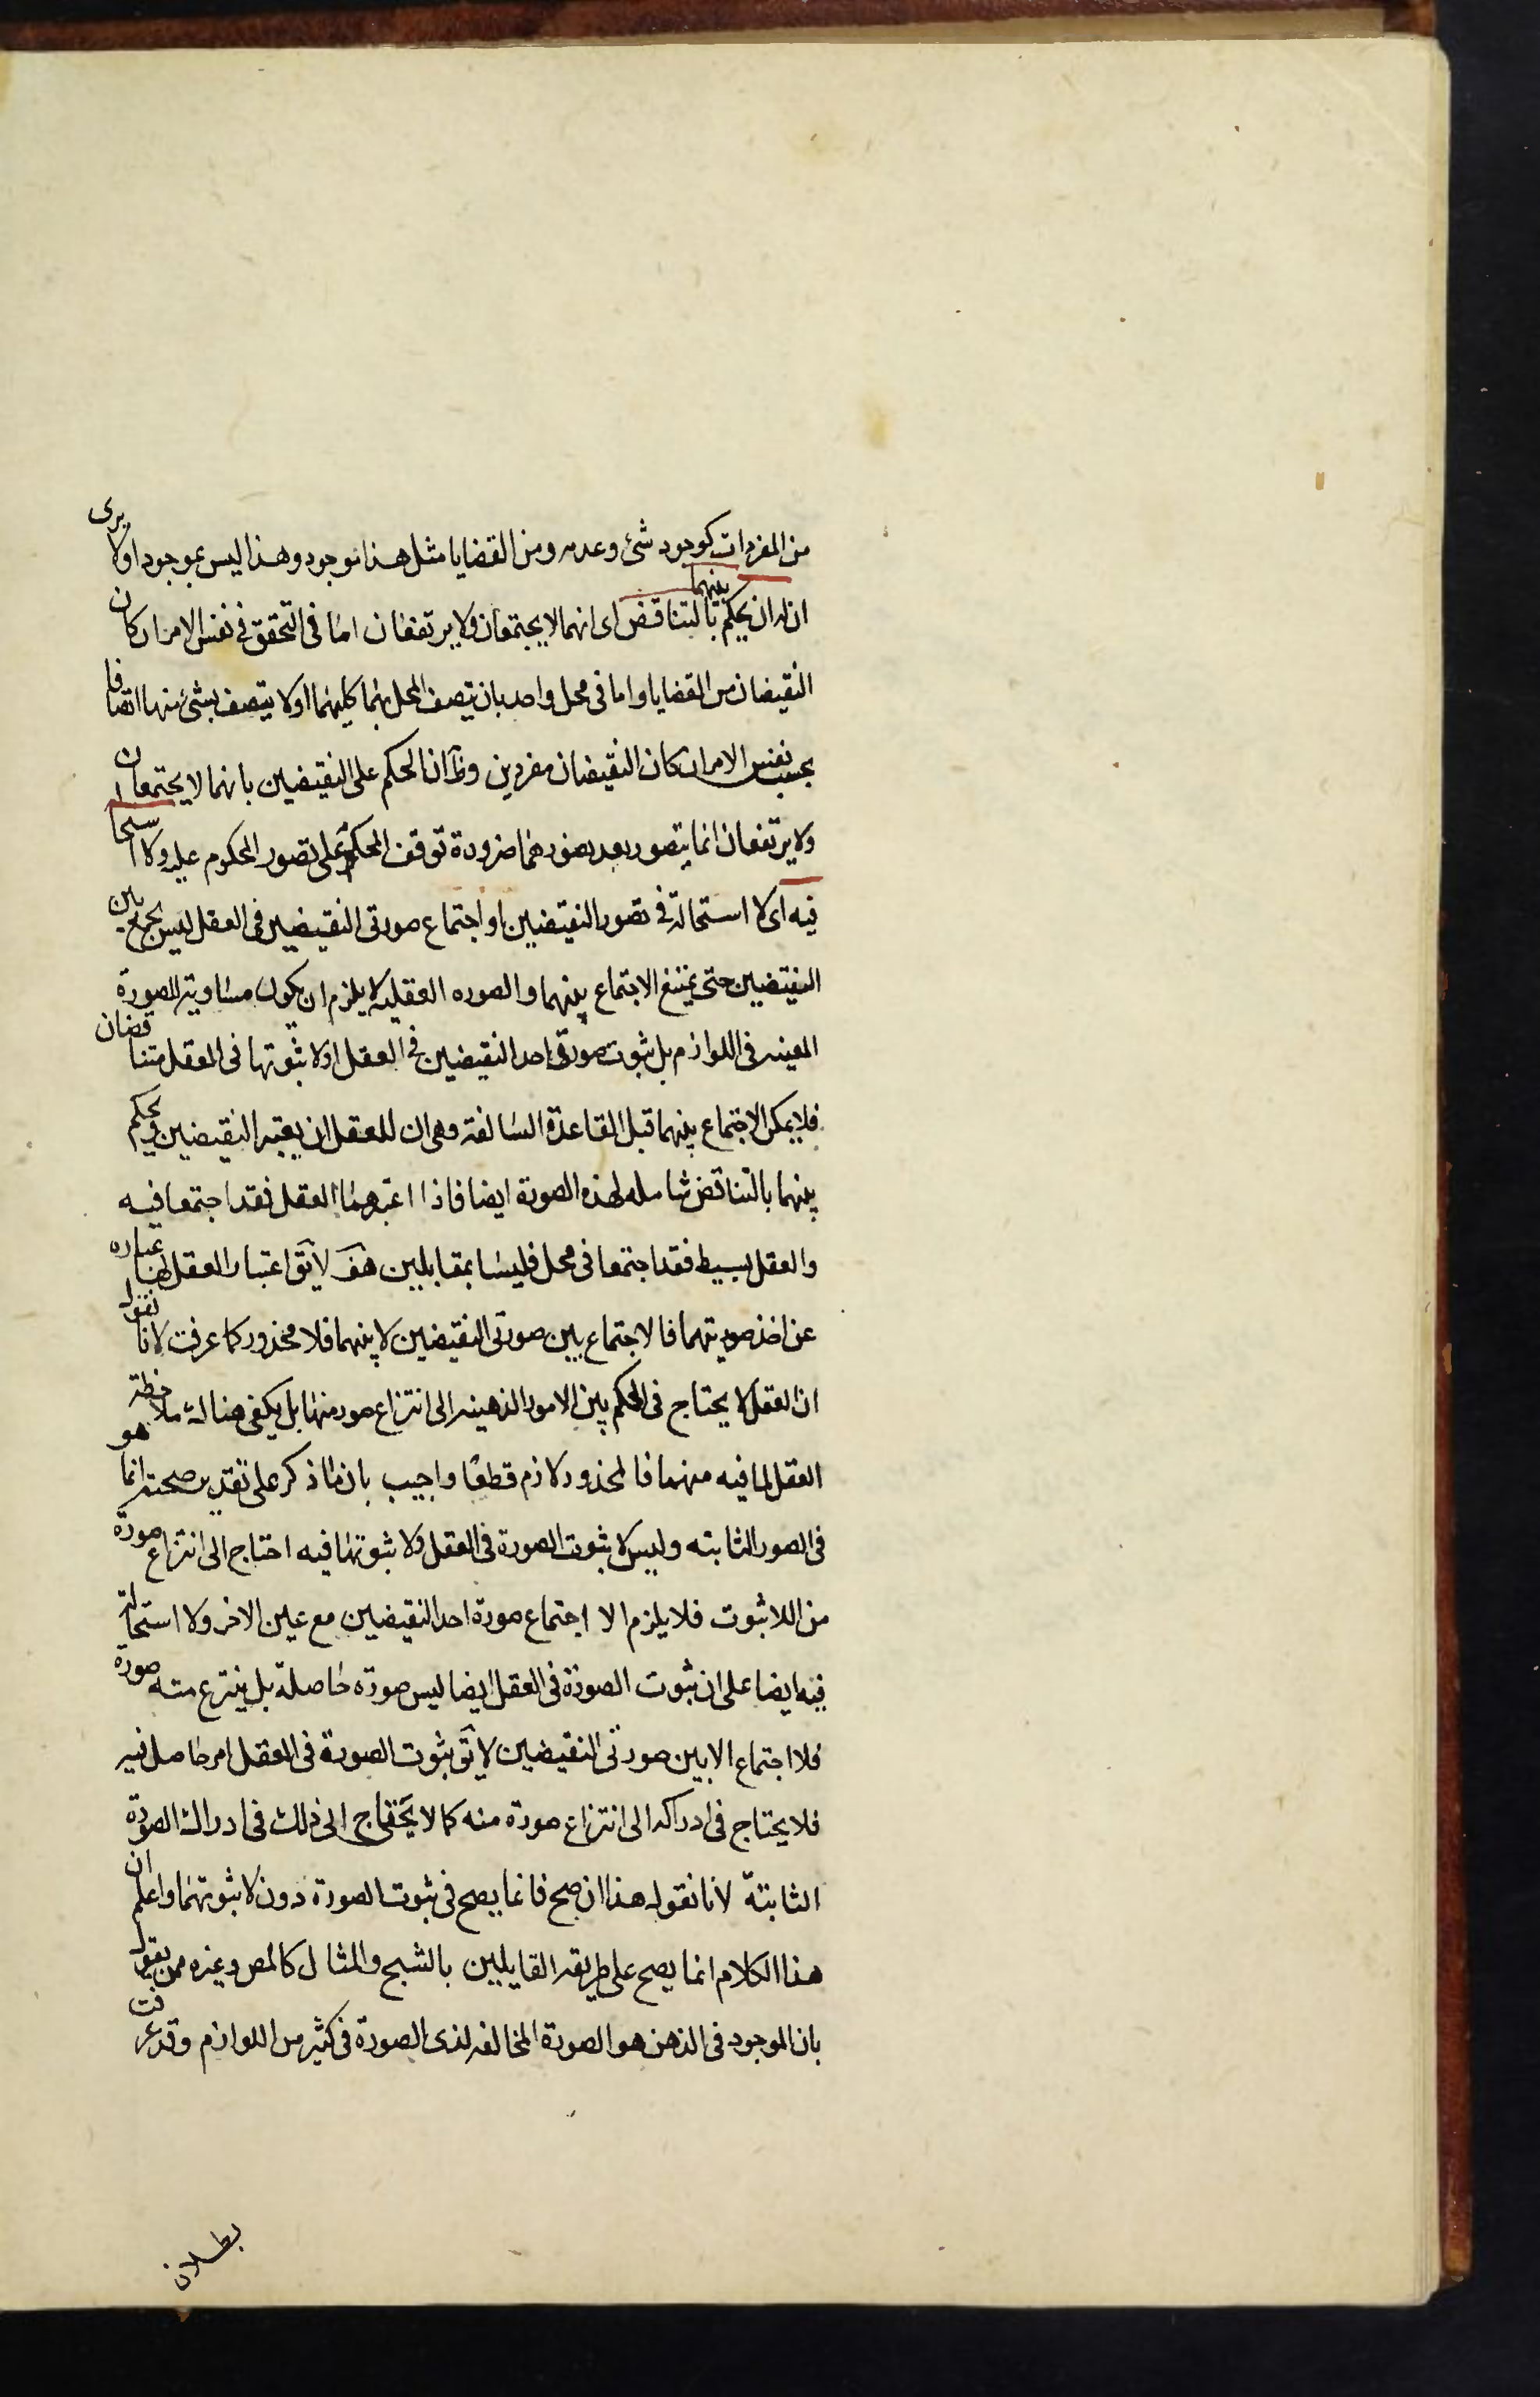 من المفردات كوجود شئ وعدمه ومن القضايا مثل هذا موجود وهذا ليس بموجود اولا يرى
ان له ان يحكم بينهما بالتناقض اى انهما لا يجتمعان ولا يرتفعان اما فى التحقق فى نفس الامر ان كان
النقيضان من القضايا واما فى محل واحد بان يتصف المحل بهما كليهما اولا يتصف بشئ منهما اتصافا
بحسب نفس الامر ان كان النقيضان مفردين وظ ان الحكم على النقيضين بانهما لا يجتمعان
ولا يرتفعان انما يتصور بعد تصورهما ضرورة توقف الحكم على تصور المحكوم عليه ولا استحا
فيه اى لا استحالة فى تصور النقيضين او اجتماع صورتى النقيضين فى العقل ليس بجمع بين
النقيضين حتى يمتنع الاجتماع بينهما والصوره العقلية لا يلزم ان يكون مساوية للصورة
العينيه فى اللوازم بل ثبوت صورة احد النقيضين فى العقل ولا ثبوتها فى العقل متناقضان
فلا يمكن الاجتماع بينهما قبل القاعدة السالفة وهى ان للعقل ان يعتبر النقيضين ويحكم
بينهما بالتناقض شامله لهذه الصورة ايضا فاذا اعتبرهما العقل فقد اجتمعا فيه
والعقل بسيط فقد اجتمعا فى محل فليسا بمقابلين هف لا يق اعتبار العقل لهما عباره
عن اخذ صورتهما فالاجتماع بين صورتى النقيضين لا بينهما فلا محذور كما عرفت لانا نقول
ان العقل لا يحتاج فى الحكم بين الامور الذهنيه الى انتزاع صور منها بل يكفى هنالك ملاحظة
العقل لما فيه منهما فالمحذور لازم قطعا واجيب بان ما ذكر على تقدير صحته انما هو
فى الصور الثابته وليس لا ثبوت الصورة فى العقل ولا ثبوتها فيه احتاج الى انتزاع صورة
من اللاثبوت فلا يلزم الا اجتماع صورة احد النقيضين مع عين الاخر ولا استحالة
فيه ايضا على ان ثبوت الصورة فى العقل ايضا ليس صورة حاصلة بل ينتزع منه صورة
فلا اجتماع الا بين صورتى النقيضين لا يق ثبوت الصورة فى العقل امر حاصل فيه
فلا يحتاج فى ادراكه الى انتزاع صورة منه كما لا يحتاج الى ذلك فى ادراك الصورة
الثابتة لانا نقول هذا ان صح فانما يصح فى ثبوت الصورة دون لا ثبوتها واعلم ان
هذا الكلام انما يصح على طريقه القايلين بالشبح والمثال كالمص وغيره ممن يقول
بان الموجود فى الذهن هو الصورة المخالفه لذى الصورة فى كثير من اللوازم وقد عرفت
بطلان